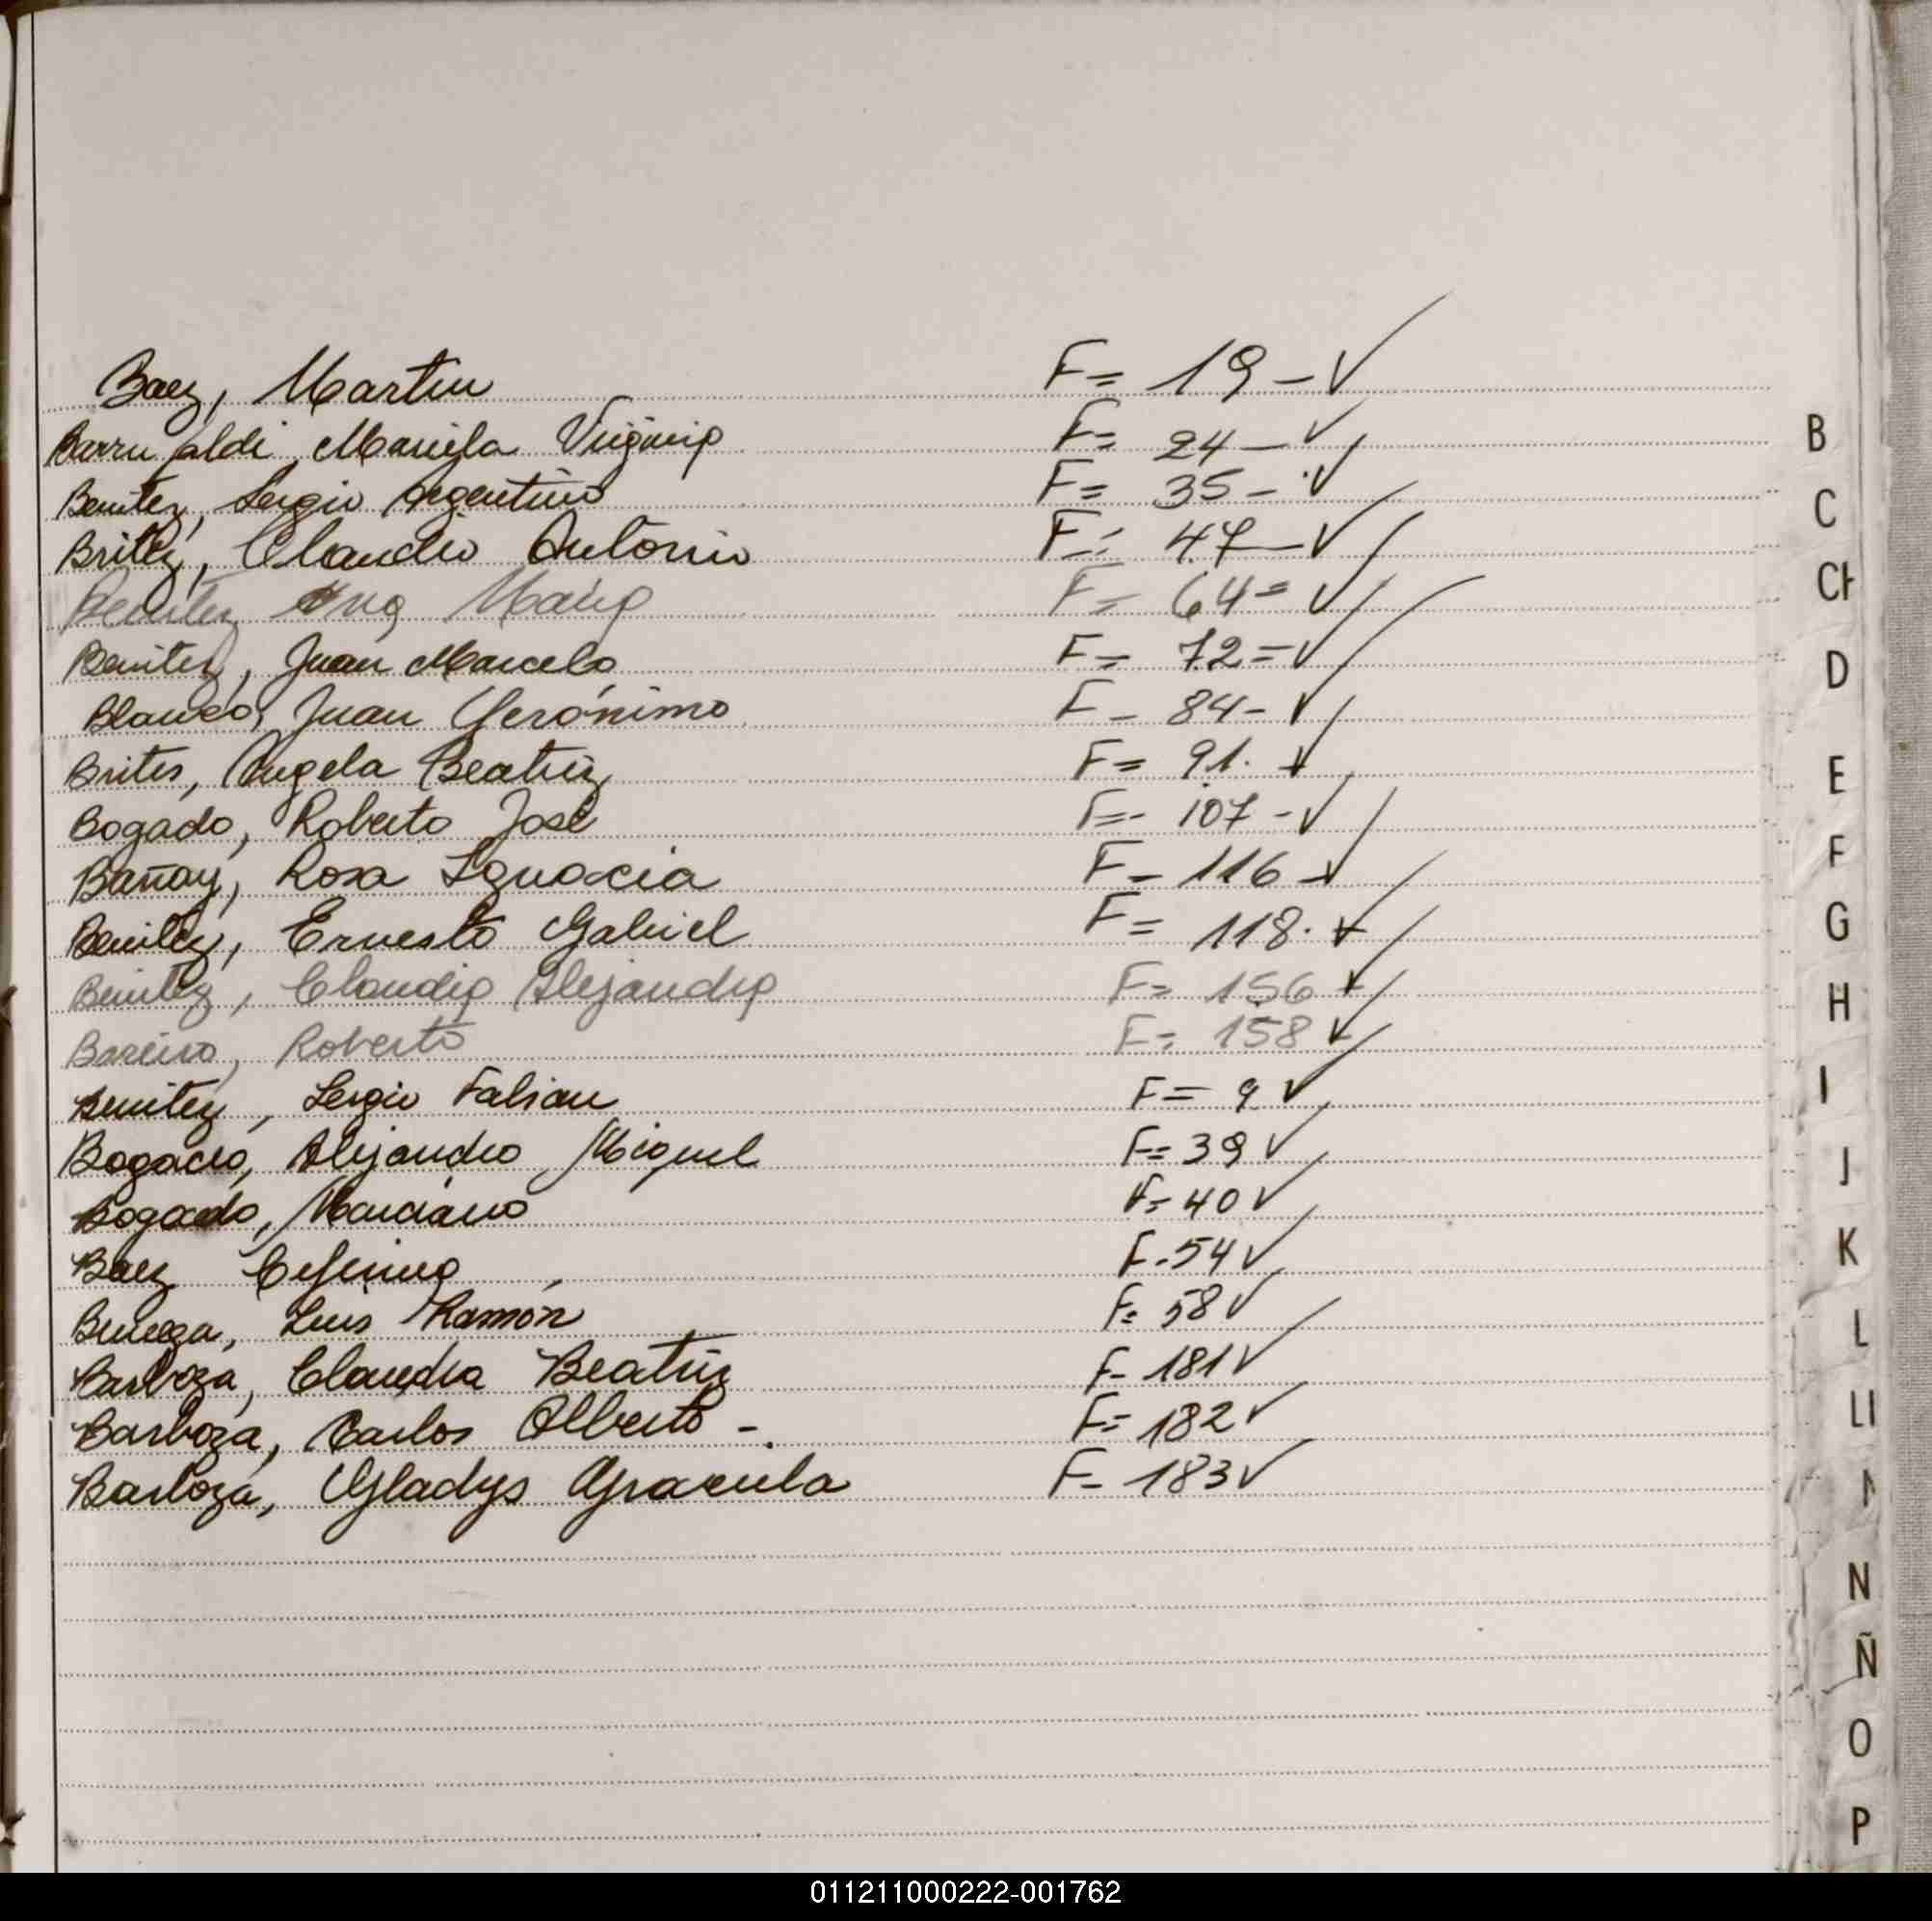 Baez, Martin F= 19 - ✓
Barru aldi, Mariela Virginia F= 24 - ✓
Benitez, Sergio Argentino F= 35 - ✓
Britez, Claudio Antonio F= 47 - ✓
B
Benitez Ana Maria F= 64 = ✓
C
Benitez, Juan Marcelo F= 72 = ✓
CH
Blanco, Juan Gerónimo F- 84 - ✓
D
Brites, Angela Beatriz F= 91. ✓
E
Bogado, Roberto José F=- 107 - ✓
Bañay, Rosa Ignacia F- 116 - ✓
F
Benitez, Ernesto Gabriel F= 118. ✓
G
Benitez, Claudia Alejandra F= 156 ✓
H
Bareiro, Roberto F= 158 ✓
Benitez, Sergio Fabian F= 9 ✓
I
Bogado, Alejandro Miguel F= 39 ✓
J
Bogado, Marciano F= 40 ✓
Baez F- 54 ✓
K
Luis Ramón F= 58 ✓
L
Barboza, Claudia Beatriz F- 181 ✓
Barboza, Carlos Alberto -. F= 182 ✓
Ll
Barboza, Gladys Graciela F- 183 ✓
N
Ñ
O
P
011211000222-001762